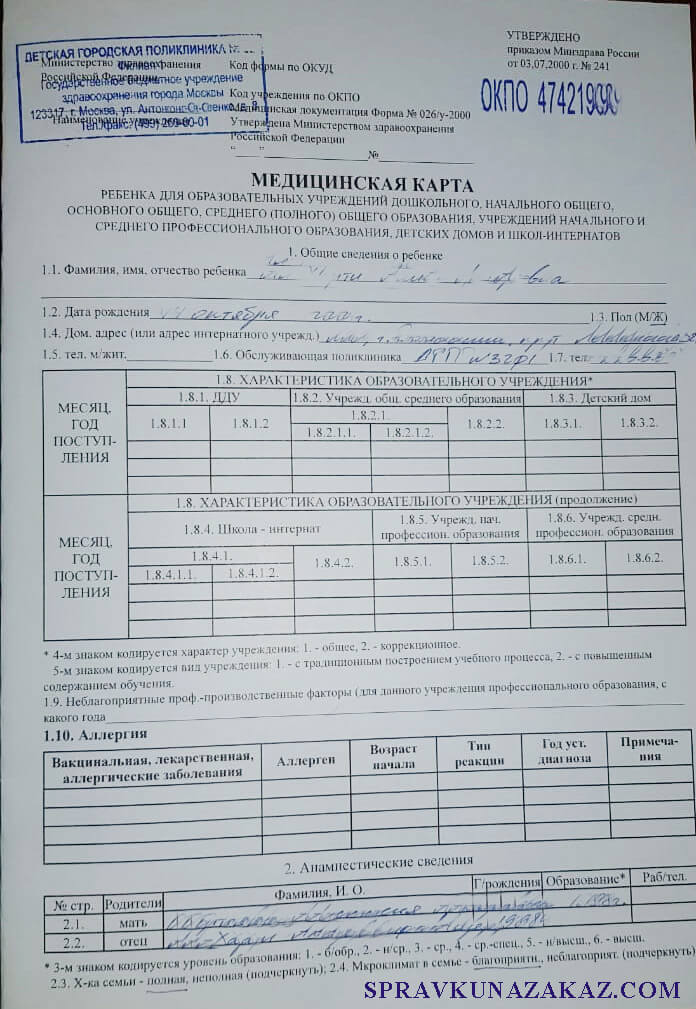 УТВЕРЖДЕНО
приказом Минздрава России
от 03,07,2000 г. № 241
ДЕТСКАЯ ГОРОДСКАЯ ПОЛИКЛИНИКА №
Филиал
Государственное бюджетное учреждение
здравоохранения города Москвы
123317, г. Москва, ул.
Тел./факс: (499) 01
Министерство здравоохранения
Российской Федерации
Наименование учреждения
Код формы по ОКУД
Код учреждения по ОКПО
Медицинская документация Форма № 026/у-2000
Утверждена Министерством здравоохранения
Российской Федерации
"___"____________№____________
ОКПО 474219
МЕДИЦИНСКАЯ КАРТА
РЕБЕНКА ДЛЯ ОБРАЗОВАТЕЛЬНЫХ УЧРЕЖДЕНИЙ ДОШКОЛЬНОГО, НАЧАЛЬНОГО ОБЩЕГО,
ОСНОВНОГО ОБЩЕГО, СРЕДНЕГО (ПОЛНОГО) ОБЩЕГО ОБРАЗОВАНИЯ, УЧРЕЖДЕНИЙ НАЧАЛЬНОГО И
СРЕДНЕГО ПРОФЕССИОНАЛЬНОГО ОБРАЗОВАНИЯ, ДЕТСКИХ ДОМОВ И ШКОЛ-ИНТЕРНАТОВ
1. Общие сведения о ребенке
1.1. Фамилия, имя, отчество ребенка
1.2. Дата рождения октября 1.3. Пол (М/Ж)
1.4. Дом. адрес (или адрес интернатного учрежд.)
1.5. тел. м/жит. 1.6. Обслуживающая поликлиника 1.7. тел.
1.8. ХАРАКТЕРИСТИКА ОБРАЗОВАТЕЛЬНОГО УЧРЕЖДЕНИЯ*
МЕСЯЦ, ГОД ПОСТУП- ЛЕНИЯ
1.8.1. ДДУ 1.8.2. Учрежд. общ. среднего образования 1.8.3. Детский дом
1.8.1.1 1.8.1.2 1.8.2.1. 1.8.2.2. 1.8.3.1. 1.8.3.2.
1.8.2.1.1. 1.8.2.1.2.
1.8. ХАРАКТЕРИСТИКА ОБРАЗОВАТЕЛЬНОГО УЧРЕЖДЕНИЯ (продолжение)
МЕСЯЦ, ГОД ПОСТУП- ЛЕНИЯ
1.8.4. Школа - интернат 1.8.5. Учрежд. нач. профессион. образования 1.8.6. Учрежд. средн. профессион. образования
1.8.4.1. 1.8.4.2. 1.8.5.1. 1.8.5.2. 1.8.6.1. 1.8.6.2.
1.8.4.1.1. 1.8.4.1.2.
* 4-м знаком кодируется характер учреждения: 1. - общее, 2. - коррекционное.
5-м знаком кодируется вид учреждения: 1. - с традиционным построением учебного процесса, 2. - с повышенным
содержанием обучения.
1.9. Неблагоприятные проф.-производственные факторы (для данного учреждения профессионального образования, с
какого года
1.10. Аллергия
Вакцинальная, лекарственная, аллергические заболевания Аллерген Возраст начала Тип реакции Год уст. диагноза Примеча- ния
2. Анамнестические сведения
№ стр. Родители Фамилия, И. О. Г/рождения Образование* Раб/тел.
2.1. мать
2.2. отец
* 3-м знаком кодируется уровень образования: 1. - б/обр., 2. - н/ср., 3. - ср., 4. - ср.-спец., 5. - н/высш., 6. - высш.
2.3. Х-ка семьи - полная, неполная (подчеркнуть); 2.4. Мкроклимат в семье - благоприятн., неблагоприят. (подчеркнуть)
SPRAVKUNAZAKAZ.COM